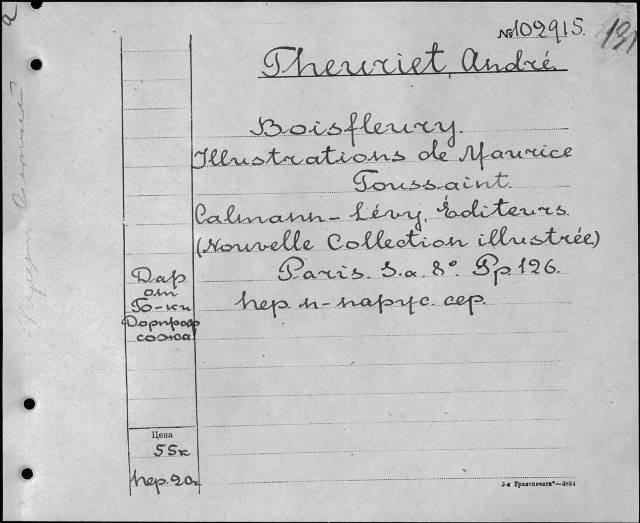 №102915.
131
Theuriet, André.
Boisfleury.
Illustrations de Maurice
Toussaint.
Calmann-Lévy, Éditeurs.
(Nouvelle Collection illustrée)
Paris. S.a. 8º. Pp 126.
пер. п-парус. сер.
Дар
от
Б-ки
Дорпроф
сожа
Цена
55к
пер. 20к
3-я Транспечать—3884